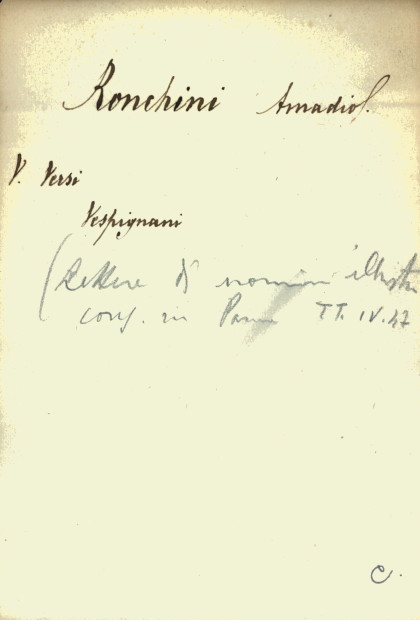 Ronchini Amadio
V. Versi
Vespignani
(Lettere di uomini illustri
cons. in Parma TT. IV. 47
C.